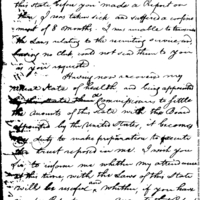 this State before you made a Report on
this, I was taken sick and suffered a confine
ment of 8 months. I was unable to
the Laws relating to the
having no clerk could not send them to you
as you requested.
Having now recovered my
usual State of health and being appointed
by this State their Commissioner to settle
the accounts of this State with the Board
appointed by the United States, it becomes
my duty to make preparation to execute
the trust reposed in me. I wish you
to inform me whether my attendance
at this time, with the Laws of this State
will be and whether, if you have